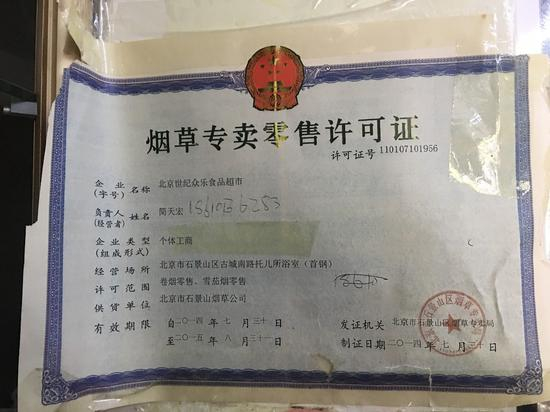 烟草专卖零售许可证
许可证号 110107101956
企业(字号)名称 北京世纪众乐食品超市
负责人(经营者)姓名 简天宏
企业类型(组成形式) 个体工商
经营场所 北京市石景山区古城南路托儿所浴室(首钢)
许可范围 卷烟零售、雪茄烟零售
供货单位 北京市石景山烟草公司
有效期限 自二〇一四年 七月 三十日
至二〇一五年 八月 三十一日
发证机关 北京市石景山区烟草专卖局
制证日期 二〇一四年 七月 三十日